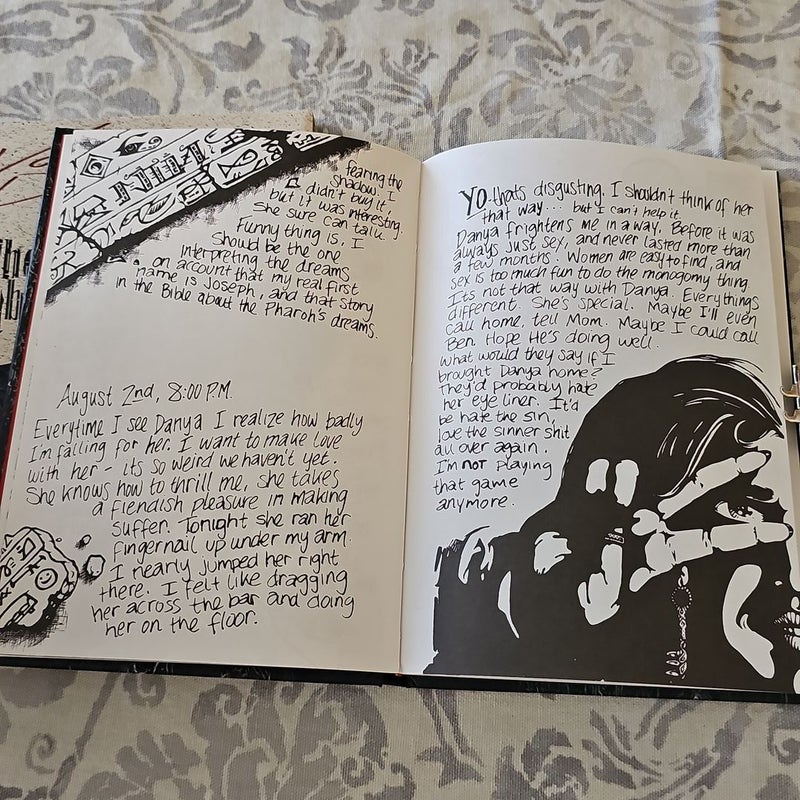 fearing the
shadow. I
didn't buy it
but it was interesting.
She sure can talk.
Funny thing is, I
Should be the one
interpreting the dreams
on account that my real first
name is Joseph, and that story
in the Bible about the Pharoh's dreams.
August 2nd, 8:00 P.M.
Everytime I see Danya I realize how badly
I'm falling for her. I want to make love
with her - its so weird we haven't yet.
She knows how to thrill me, she takes
a fiendish pleasure in making
suffer. Tonight she ran her
fingernail up under my arm.
I nearly jumped her right
there. I felt like dragging
her across the bar and doing
her on the floor.
Yo-thats disgusting. I shouldn't think of her
that way... but I can't help it.
Danya frightens me in a way. Before it was
always just sex, and never lasted more than
a few months. Women are easy to find, and
sex is too much fun to do the monogomy thing.
Its not that way with Danya. Everythings
different. She's special. Maybe I'll even
call home, tell Mom. Maybe I could call
Ben. Hope He's doing well.
what would they say if I
brought Danya home?
They'd probably hate
her eye liner. It'd
be hate the sin,
love the sinner shit
all over again.
I'm not playing
that game
anymore.